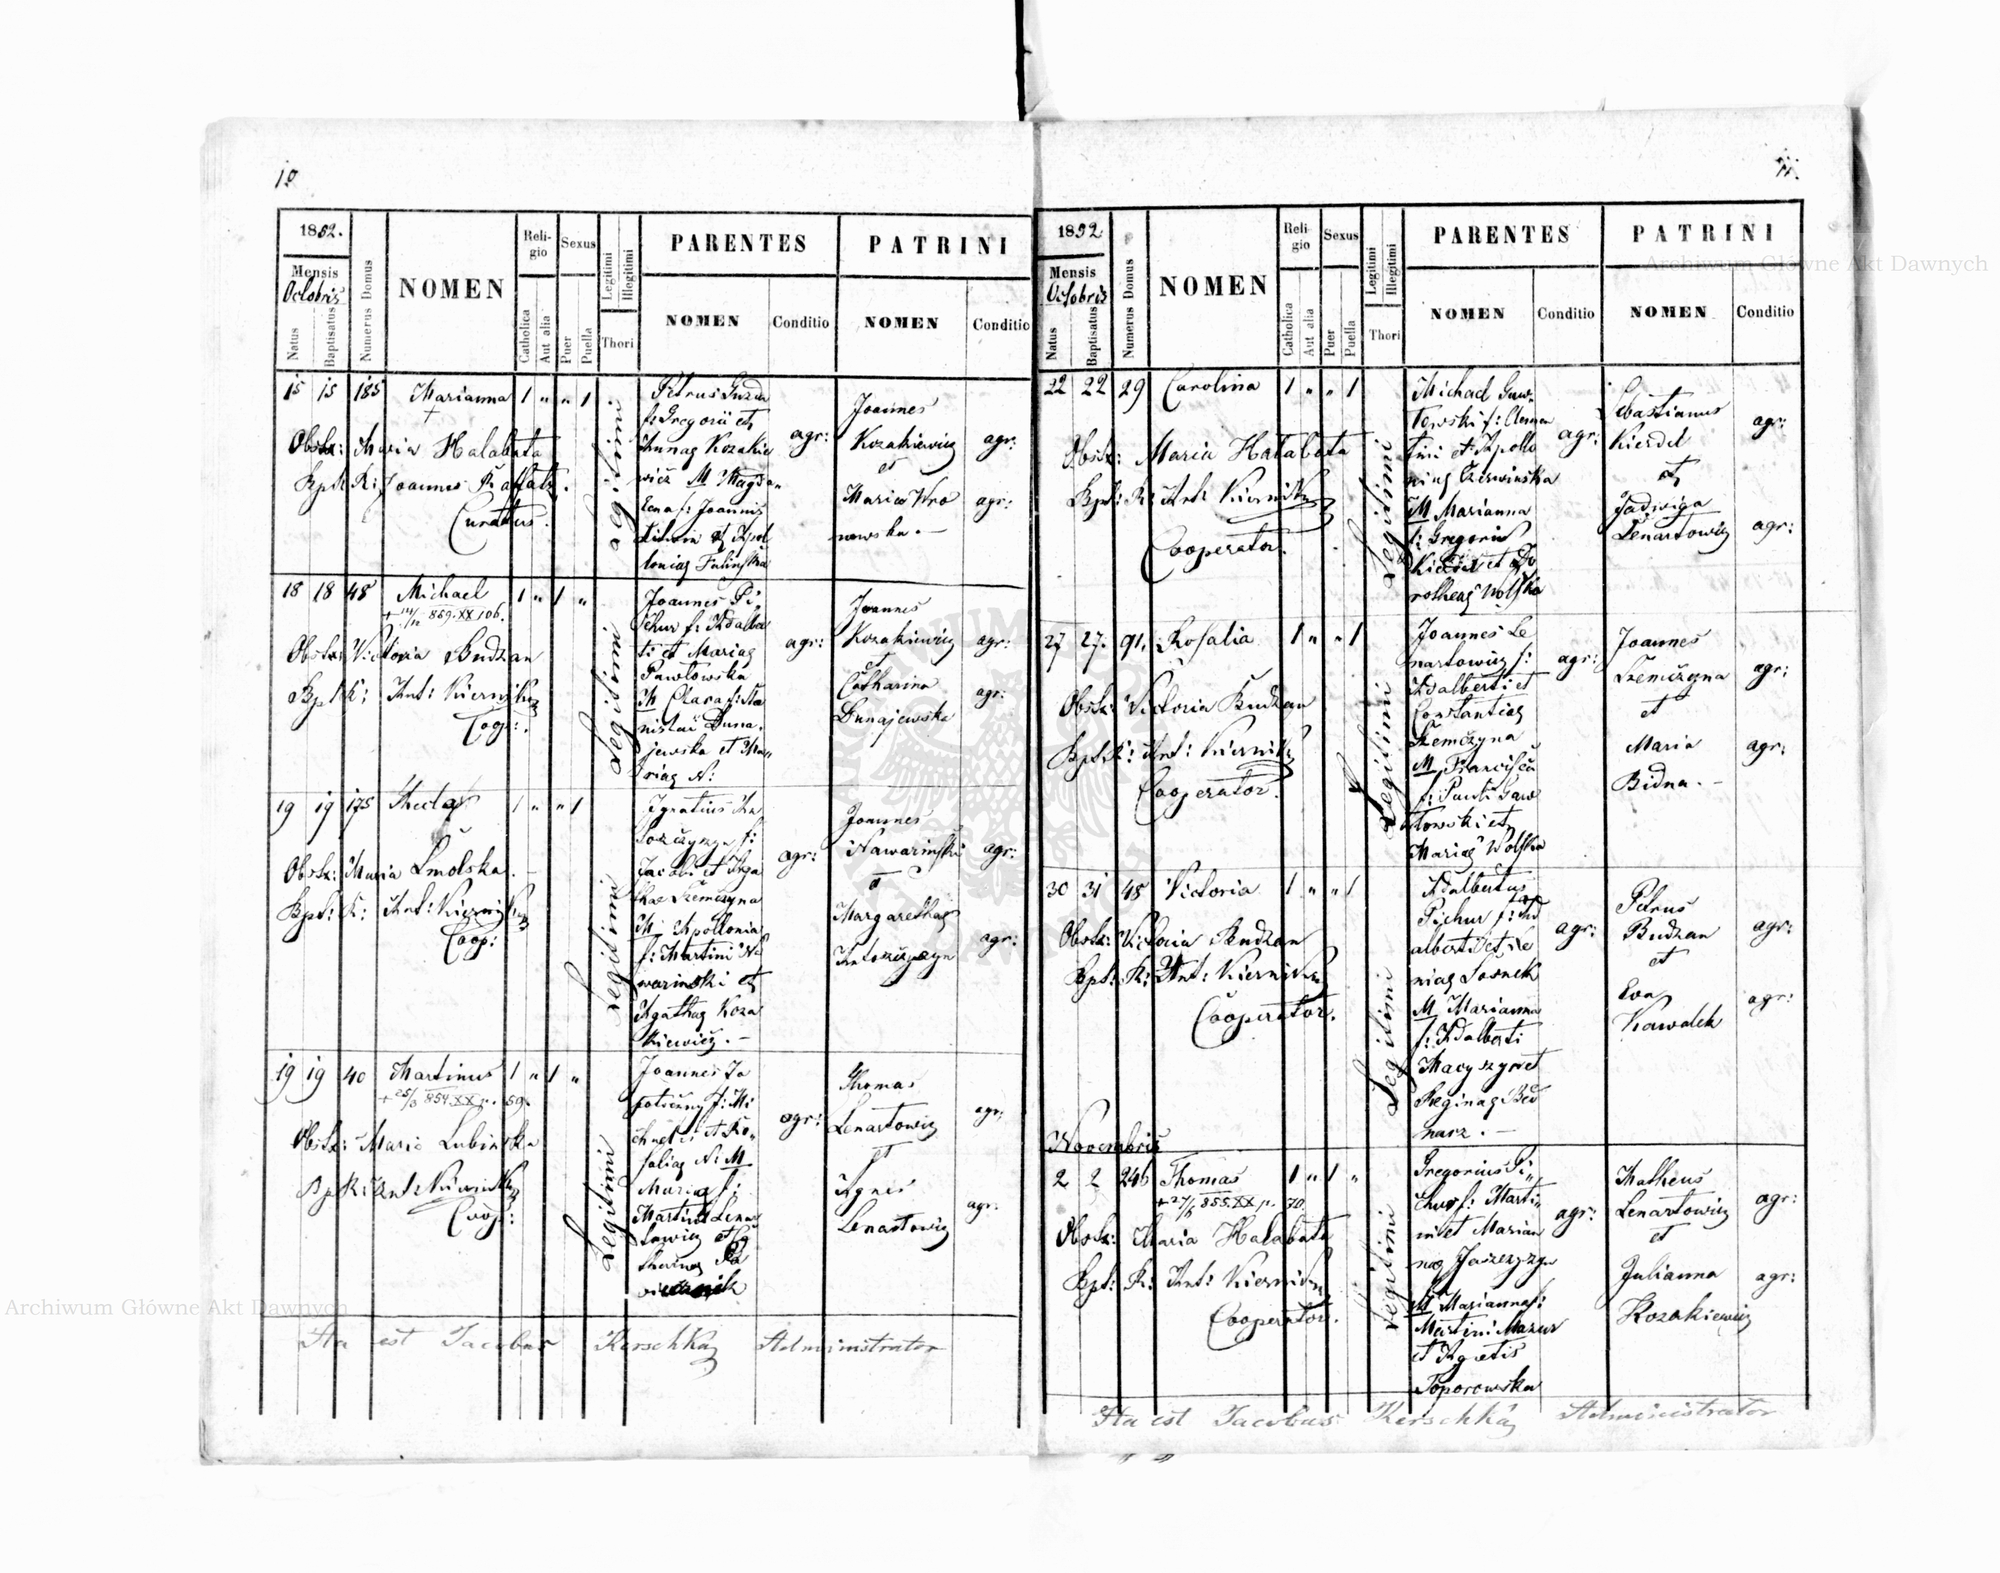 10
1852.
Mensis
Octobris
Natus
Baptisatus
Numerus Domus
NOMEN
Religio
Catholica
Aut alia
Sexus
Puer
Puella
Legitimi
Illegitimi
Thori
PARENTES
NOMEN
Conditio
PATRINI
NOMEN
Conditio
15 15 185 Marianna 1 " " 1
Obstr: Maria Halabata
Bpt: R: Joannes
Curatus.
Legitimi
f: Gregorii et
Annae Kozakie
wicz M Magda
lena f: Joannis
agr:
Joannes
Kozakiewicz
et
Maria Wro
nowska.
agr:
agr:
18 18 48 Michael 1 " 1 "
Obstr: Victoria Budzan
Bpt R: Ant: Kiernik
Coop:
Legitimi
Joannes Pi
chur f: Adalber
ti et Mariae
Pawłowska
M Clara f: Sta
nislai Duna
jewska et Ma
riae N:
agr:
Joannes
Kozakiewicz
et
Catharina
Dunajewska
agr:
agr:
19 19 175 Thecla 1 " " 1
Obstr: Maria Smolska
Bpt: R: Ant: Kiernik
Coop:
Legitimi
Ignatius An
f:
Jacobi et Aga
thae Szemczyna
M Apollonia
f: Martini Na
warinski et
Agathae Koza
kiewicz.
agr:
Joannes
Nawarinski
et
Margaretha
agr:
agr:
19 19 40 Martinus 1 " 1 "
Obstr: Maria Lubinska
Bpt R: Ant: Kiernik
Coop:
Legitimi
Joannes Za
f: Mi
chaelis et Ro
saliae N: M
Maria f:
Martini Lenar
towicz et Ca
agr:
Thomas
Lenartowicz
et
Agnes
Lenartowicz
agr:
agr:
Ita est Jacobus Kerschka Administrator
11.
1852.
Mensis
Octobris
Natus
Baptisatus
Numerus Domus
NOMEN
Religio
Catholica
Aut alia
Sexus
Puer
Puella
Legitimi
Illegitimi
Thori
PARENTES
NOMEN
Conditio
PATRINI
NOMEN
Conditio
22 22 29 Carolina 1 " " 1
Obstr: Maria Halabata
Bpt: R: Ant: Kiernik
Cooperator.
Legitimi
Michael Gaw
łowski f: Clemen
tini et Apollo
niae Czerwinska
M Marianna
f: Gregorii
Kierdel et Do
rotheae Wolska
agr:
Sebastianus
Kierdel
et
Jadwiga
Lenartowicz
agr:
agr:
27 27. 91. Rosalia 1 " " 1
Obstr: Victoria Budzan
Bpt: R: Ant: Kiernik
Cooperator.
Legitimi
Joannes Le
nartowicz f:
Adalberti et
Constantiae
Szemczyna
M Francisca
f: Pauli Gaw
łowski et
Mariae Wolska
agr:
Joannes
Szemczyna
et
Maria
Bidna.
agr:
agr:
30 31 48 Victoria 1 " " 1
Obstr: Victoria Budzan
Bpt: R: Ant: Kiernik
Cooperator.
Legitimi
Adalbertus
Pichur f: Ad
alberti et Xe
niae Sosnek
M Marianna
f: Adalberti
Macyszyn et
Reginae Bed
narz.
agr:
Petrus
Budzan
et
Eva
Kawalek
agr:
agr:
Novembris
2 2 246 Thomas 1 " 1 "
Obstr: Maria Halabata
Bpt: R: Ant: Kiernik
Cooperator.
Legitimi
Gregorius Pi
chur f: Marti
ni et Marian
nae
M Marianna f:
Martini Mazur
et Agnetis
Toporowska
agr:
Matheus
Lenartowicz
et
Julianna
Kozakiewicz
agr:
agr:
Ita est Jacobus Kerschka Administrator
Archiwum Główne Akt Dawnych
Archiwum Główne Akt Dawnych